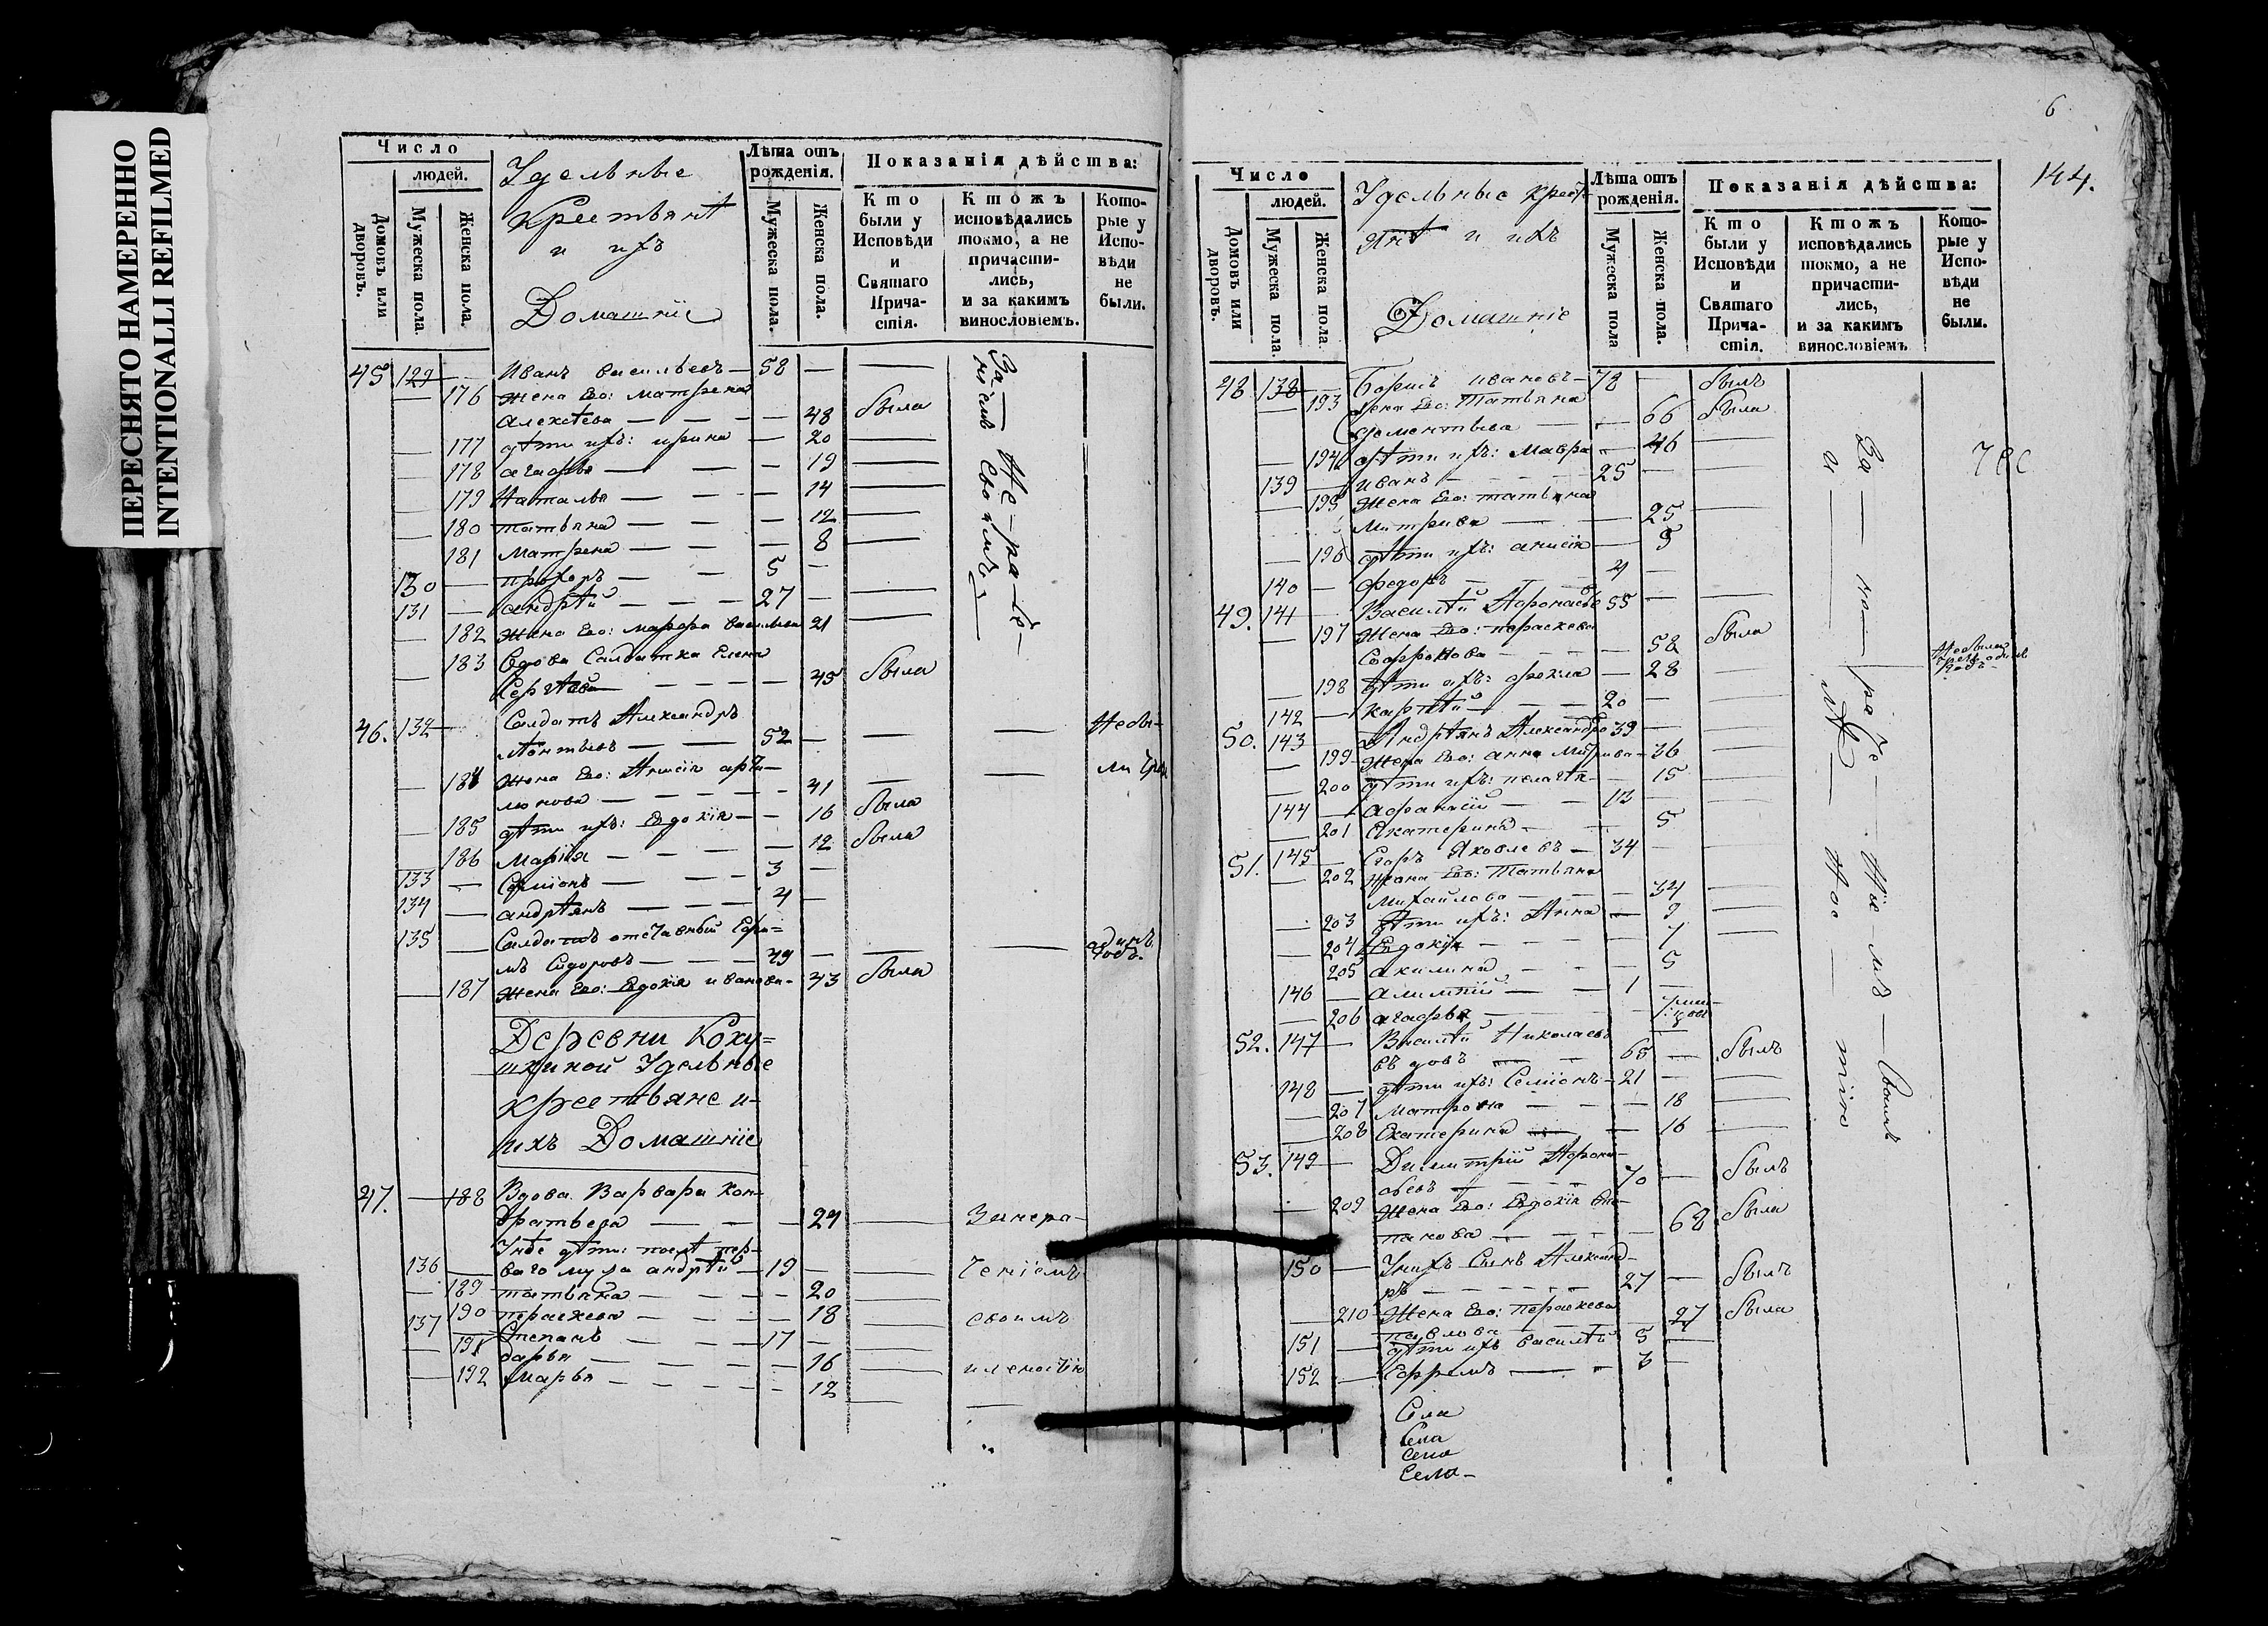 ПЕРЕСНЯТО НАМЕРЕННО
INTENTIONALLI REFILMED
Число
людей.
Домовъ или дворовъ.
Мужеска пола.
Женска пола.
Удельные
Крестьянѣ
и ихъ
Домашніе
Лѣта отъ рожденія.
Мужеска пола.
Женска пола.
Показанія дѣйства:
Кто были у Исповѣди и Святаго Причастія.
Ктожъ исповѣдались токмо, а не причастились, и за какимъ винословіемъ.
Которые у Исповѣди не были.
45 129 Иванъ Васильевъ — 58
176 жена Его: Матрена
Алексѣева — 48 была
177 дѣти ихъ: ирина — 20
178 агафья — 19
179 Наталья — 14
180 татьяна — 12
181 Матрена — 8
130 прохоръ — 5
131 андрѣй — 27
182 жена Его: марфа васильева 21
183 Вдова Салдатка Елена
Сергѣева — 45 была
За — не — ра — бо —
ніемъ своимъ
46. 132 Салдатъ Александръ
Леонтьевъ — 52 Небы-
184 жена Его: Анисія
41 ли
185 дѣти ихъ: Евдокія — 16 была
186 Марія — 12 была
133 Семіонъ — 3
134 андрѣянъ — 4
135 Салдатъ отставный Ефи=
мъ Сидоровъ — 49 одинъ годъ.
187 Жена Его: Евдокія иванова — 43 была
Деревни Коку=
шкиной Удельные
крестьяне и
ихъ Домашніе
47. 188 Вдова Варвара Кон-
дратьева — 24 Занера-
Унѣе дѣти: послѣ пер-
136 ваго мужа андрѣй — 19 ченіемъ
189 татьяна — 20
190 праскева — 18 своимъ
137 Степанъ — 17
191 дарья — 16
192 Марья — 12
6
144.
Число
людей.
Домовъ или дворовъ.
Мужеска пола.
Женска пола.
Удельные крест-
янѣ и ихъ
Домашніе
Лѣта отъ рожденія.
Мужеска пола
Женска пола.
Показанія дѣйства:
Кто были у Исповѣди и Святаго Причастія.
Ктожъ исповѣдались токмо, а не причастились, и за какимъ винословіемъ
Которые у Исповѣди не были.
48 138 Борисъ ивановъ — 78 былъ
193 жена Его: Татьяна
дементьева — 66 была
194 дѣти ихъ: Мавра — 46
139 иванъ — 25
195 жена Его: татьяна
Митрива — 25
196 дѣти ихъ: анисія — 9
140 федоръ — 4
49. 141 Василѣй Афонасье 55
197 Жена Его: параскева
Софронова — 58 была
198 дѣти ихъ: фекла — 28
142 карпѣй — 20
50. 143 Андрѣянъ Александро 39
199 Жена Его: анна Митрива — 36
200 дѣти ихъ: пелагѣя — 15
144 афанасій — 13
201 Екатерина — 5
51. 145 Егоръ Яковлевъ — 34
202 жена Его: Татьяна
Михайлова — 34
203 Дѣти ихъ: Анна — 9
204 Евдокія — 7
205 акилина — 5
146 алимпій — 1
206 агафья
52. 147 Василѣй Николаевъ
вдовъ — 65 былъ
148 дѣти ихъ: Семіонъ — 21
207 Матрона — 18
208 Екатерина — 16
53. 149 Димитрій Афона-
сьевъ — 70 былъ
209 Жена Его: Евдокія Сте-
панова — 68 была
150 Унихъ Сынъ Александ-
ръ — 27 былъ
210 Жена Его: параскева
павлова — 27 была
151 дѣти ихъ василѣй 5
152 Ефремъ — 3
Села
Села
Села
Села —